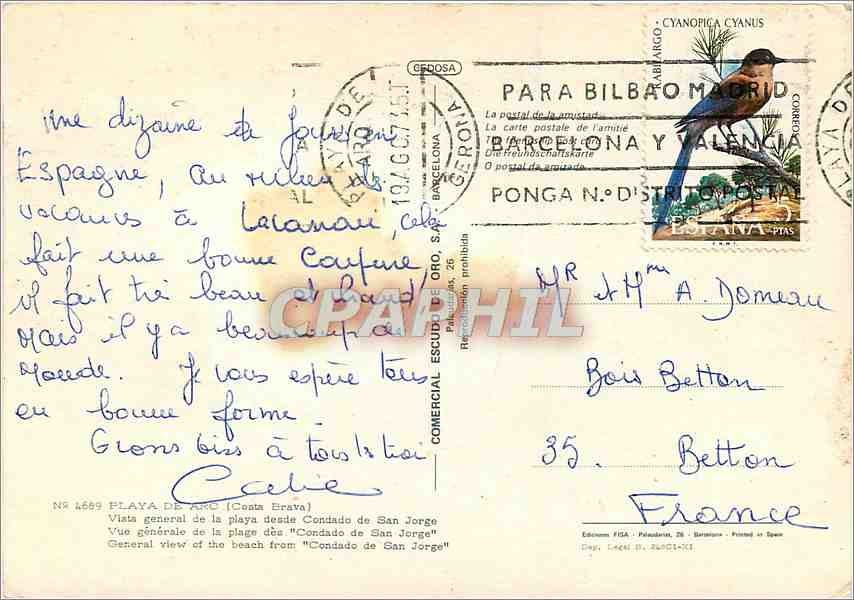 Une dizaine de jours en
Espagne, au milieu des
vacances à cela
fait une bonne coupure
il fait très beau et chaud
Mais il y a beaucoup de
Monde. Je vous espère tous
en bonne forme
Grosses bises à tous les trois
Nº 4689 PLAYA DE ARO (Costa Brava)
Vista general de la playa desde Condado de San Jorge
Vue générale de la plage dès "Condado de San Jorge"
General view of the beach from "Condado de San Jorge"
CEDOSA
COMERCIAL ESCUDO DE ORO, S.A. BARCELONA
Palaudarias, 26
Reproducción prohibida
PLAYA DE ARO
GERONA
PARA BILBAO MADRID
BARCELONA Y VALENCIA
PONGA N.º DISTRITO POSTAL
La postal de la amistad
La carte postale de l'amitié
The friendship post card
Die Freundschaftskarte
O postal da amizade
RABILARGO · CYANOPICA CYANUS
CORREOS
ESPAÑA 2 PTAS
F.N.M.T.
PLAYA DE
CPAPHIL
Mr et Mme A. Domeau
Bois Betton
35. Betton
France
Ediciones FISA - Palaudarias, 26 - Barcelona - Printed in Spain
Dep. Legal B.